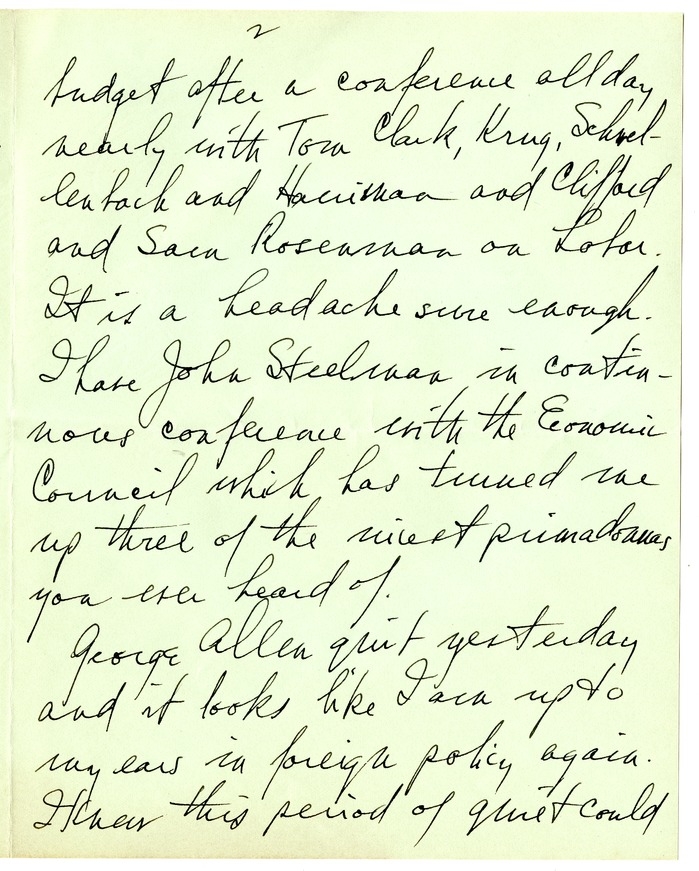 2
budget after a conference all day
nearly with Tom Clark, Krug, Schwel-
lenbach and Harriman and Clifford
and Sam Rosenman on Labor.
It is a headache sure enough.
I have John Steelman in contin-
uous conference with the Economic
Council which has turned me
up three of the nicest primadonnas
you ever heard of.
George Allen quit yesterday
and it looks like I am up to
my ears in foreign policy again.
I knew this period of quiet could